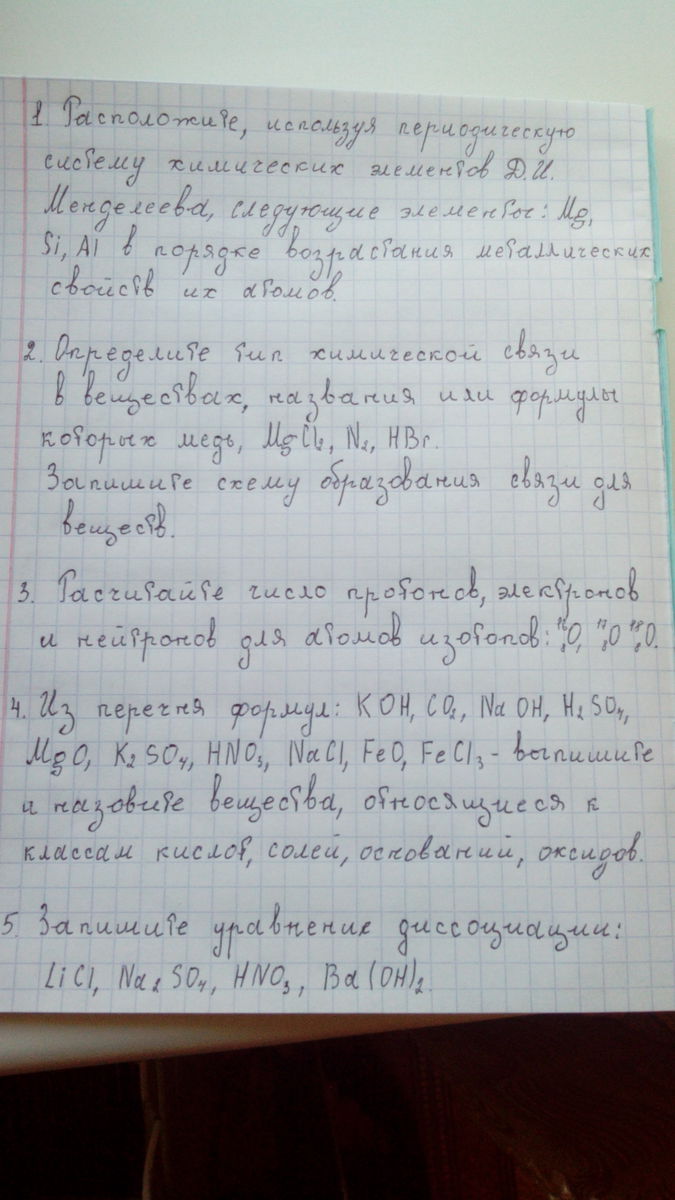 1. Расположите, используя периодическую
систему химических элементов Д.И.
Менделеева, следующие элементы: Mg,
Si, Al в порядке возрастания металлических
свойств их атомов.
2. Определите тип химической связи
в веществах, названия или формулы
которых медь, MgCl₂, N₂, HBr.
Запишите схему образования связи для
веществ.
3. Расчитайте число протонов, электронов
и нейтронов для атомов изотопов: ¹⁶₈O, ¹⁷₈O ¹⁸₈O.
4. Из перечня формул: KOH, CO₂, NaOH, H₂SO₄,
MgO, K₂SO₄, HNO₃, NaCl, FeO, FeCl₃ - выпишите
и назовите вещества, относящиеся к
классам кислот, солей, оснований, оксидов.
5. Запишите уравнение диссоциации:
LiCl, Na₂SO₄, HNO₃, Ba(OH)₂.